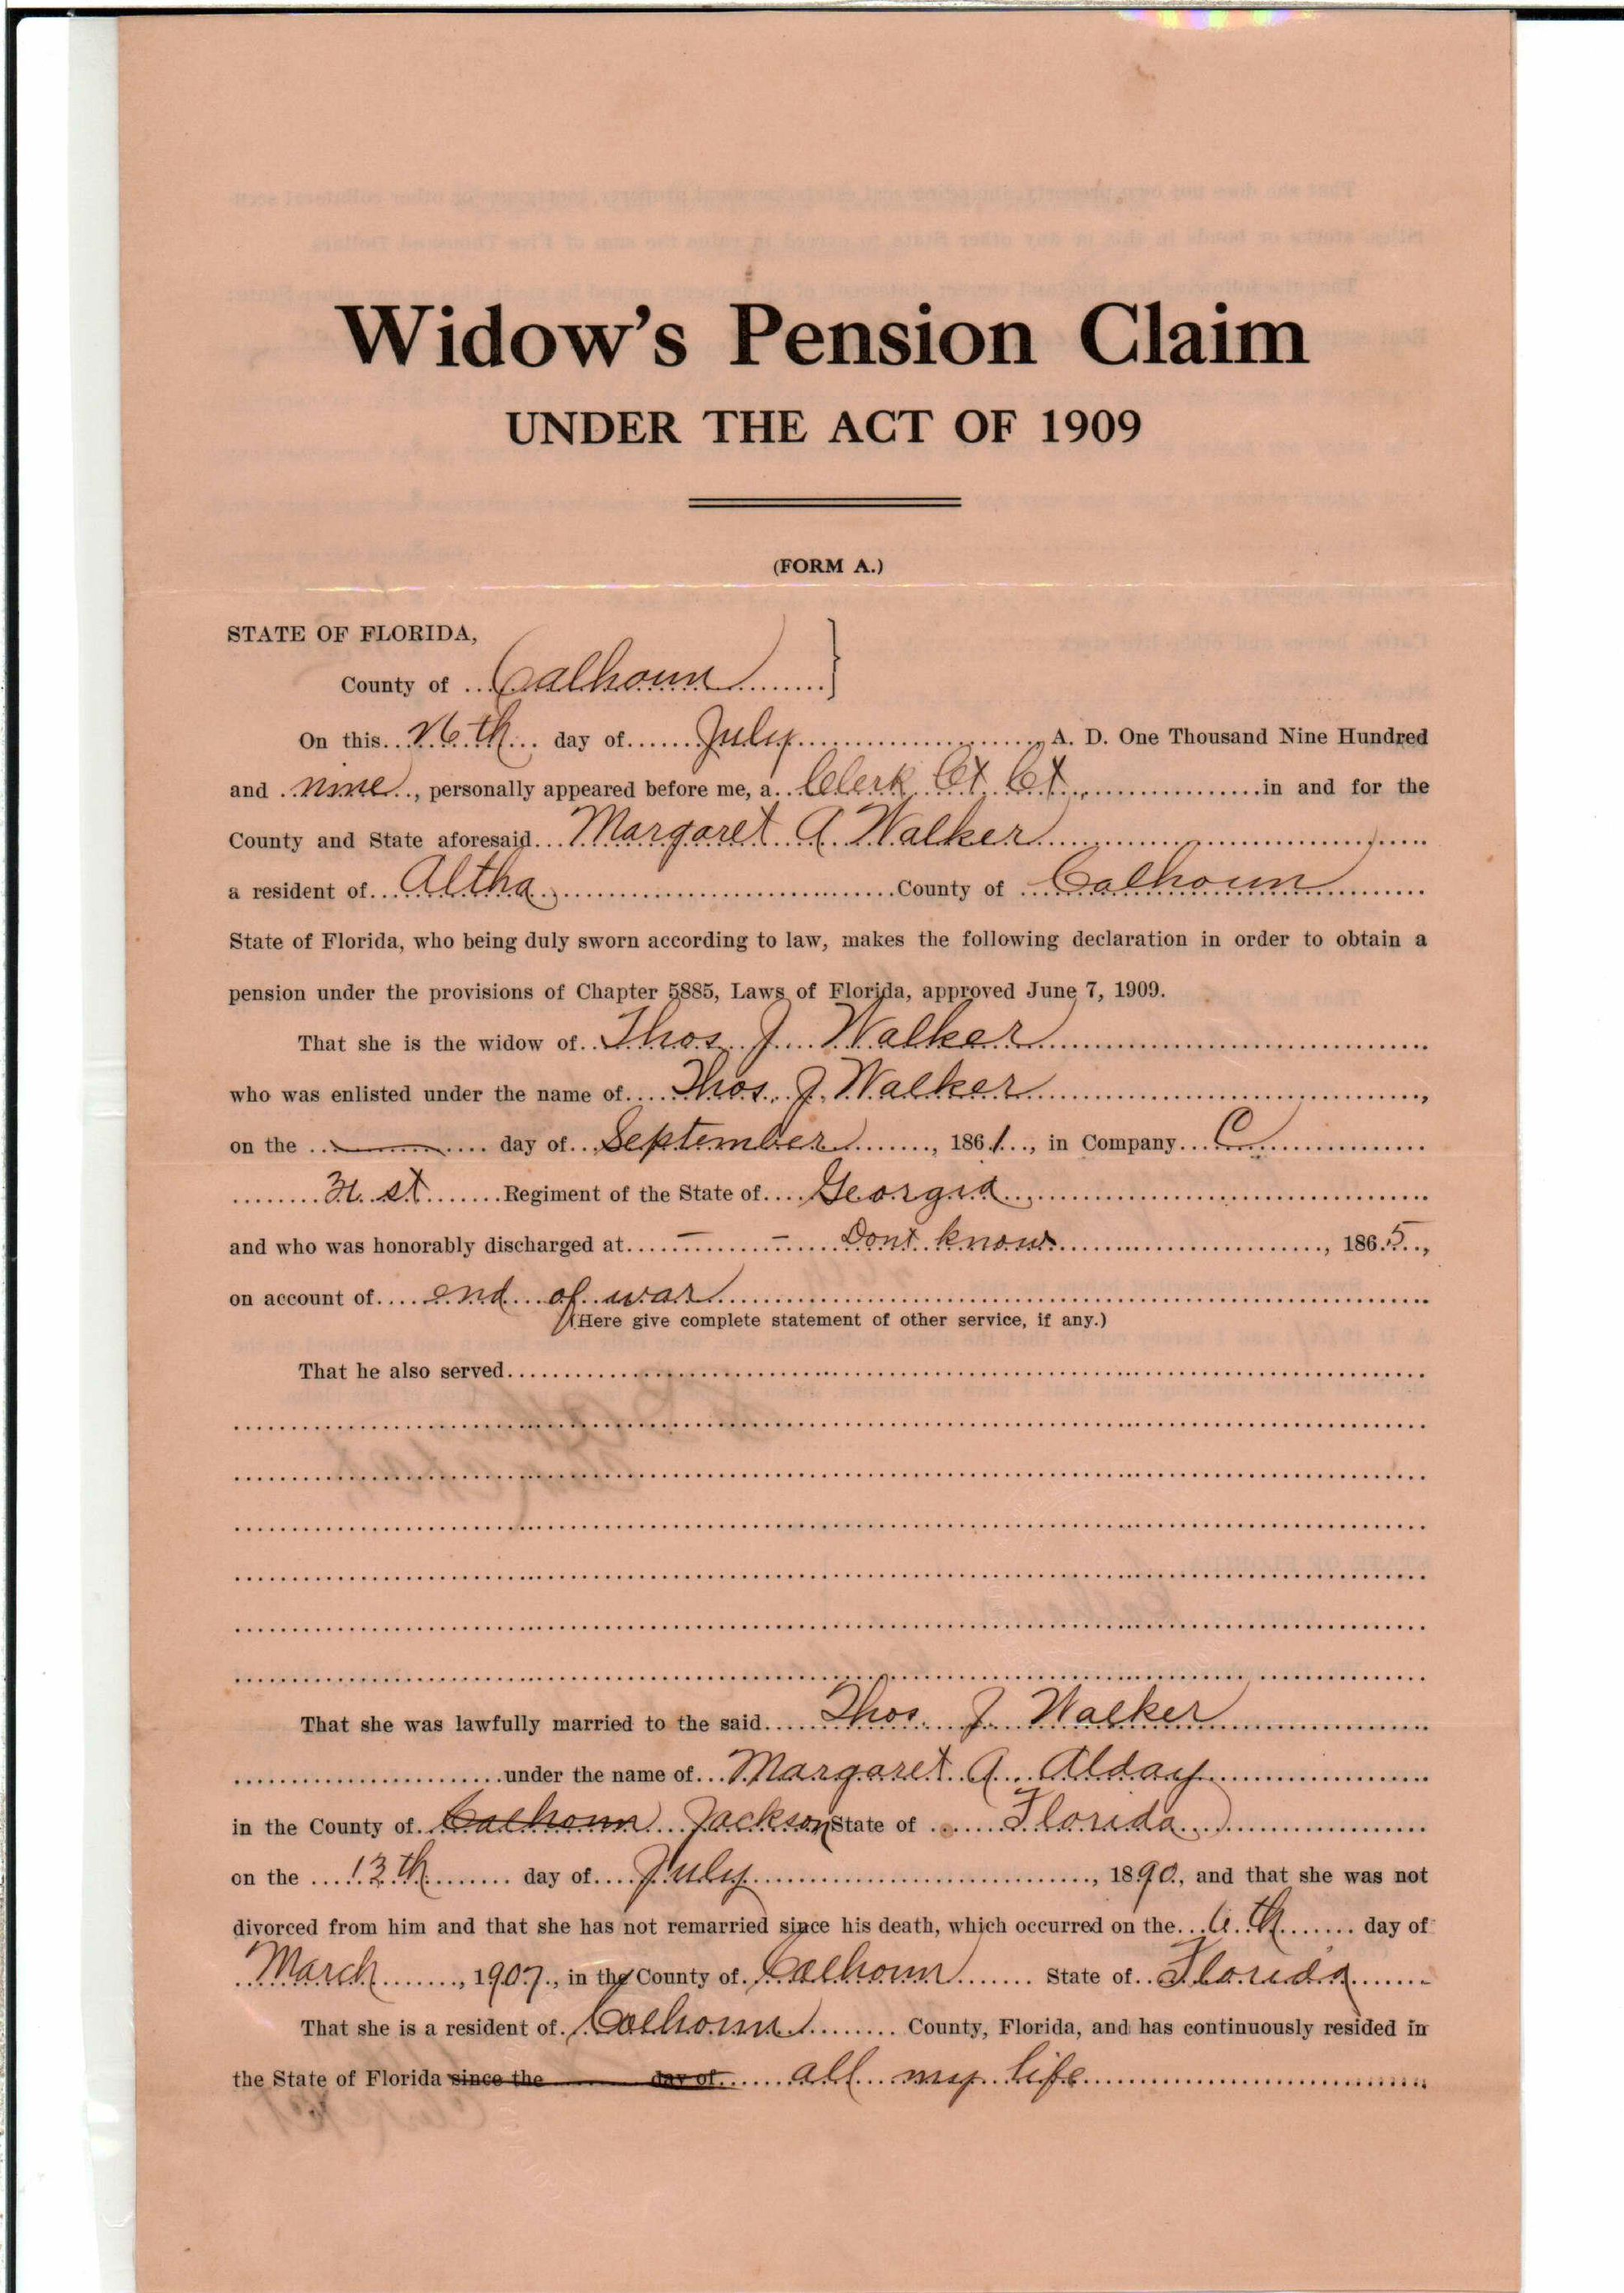 Widow's Pension Claim
UNDER THE ACT OF 1909
(FORM A.)
STATE OF FLORIDA,
County of Calhoun
On this 26th day of July A. D. One Thousand Nine Hundred
and nine, personally appeared before me, a Clerk Ct Ct in and for the
County and State aforesaid Margaret A Walker
a resident of Altha County of Calhoun
State of Florida, who being duly sworn according to law, makes the following declaration in order to obtain a
pension under the provisions of Chapter 5885, Laws of Florida, approved June 7, 1909.
That she is the widow of Thos J Walker
who was enlisted under the name of Thos. J. Walker,
on the day of September, 1861, in Company C
st Regiment of the State of Georgia
and who was honorably discharged at Dont know, 1865,
on account of end of war
(Here give complete statement of other service, if any.)
That he also served
That she was lawfully married to the said Thos. J. Walker
under the name of Margaret A. Alday
in the County of Calhoun Jackson State of Florida
on the 13th day of July, 1890, and that she was not
divorced from him and that she has not remarried since his death, which occurred on the 6th day of
March, 1907, in the County of Calhoun State of Florida
That she is a resident of Calhoun County, Florida, and has continuously resided in
the State of Florida since the day of all my life